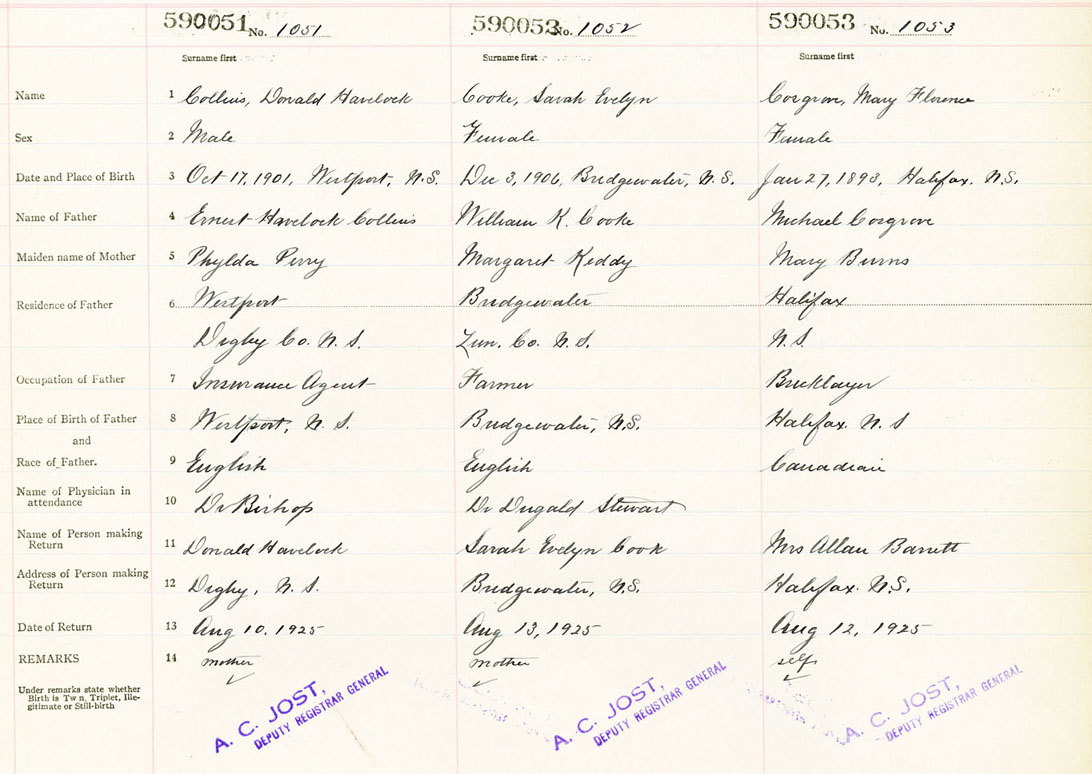 590051 No. 1051 590052 No. 1052 590053 No. 1053
Surname first Surname first Surname first
Name 1 Collins, Donald Havelock Cooke, Sarah Evelyn Cosgrove, Mary Florence
Sex 2 Male Female Female
Date and Place of Birth 3 Oct 17, 1901, Westport, N.S. Dec 3, 1906, Bridgewater, N.S. Jan 27, 1893, Halifax. N.S.
Name of Father 4 Ernest Havelock Collins William K. Cooke Michael Cosgrove
Maiden name of Mother 5 Phylda Perry Margaret Keddy Mary Burns
Residence of Father 6 Westport Bridgewater Halifax
Digby Co. N.S. Lun. Co. N.S. N.S.
Occupation of Father 7 Insurance Agent Farmer Bricklayer
Place of Birth of Father 8 Westport, N.S. Bridgewater, N.S. Halifax. N.S
and
Race of Father. 9 English English Canadian
Name of Physician in
attendance 10 Dr Bishop Dr Dugald Stewart
Name of Person making
Return 11 Donald Havelock Sarah Evelyn Cook Mrs Allan Barrett
Address of Person making
Return 12 Digby, N.S. Bridgewater, N.S. Halifax. N.S.
Date of Return 13 Aug 10. 1925 Aug 13, 1925 Aug 12, 1925
REMARKS 14 mother mother self
Under remarks state whether
Birth is Twn, Triplet, Ille-
gitimate or Still-birth
A. C. JOST,
DEPUTY REGISTRAR GENERAL
A. C. JOST,
DEPUTY REGISTRAR GENERAL
A. C. JOST,
DEPUTY REGISTRAR GENERAL